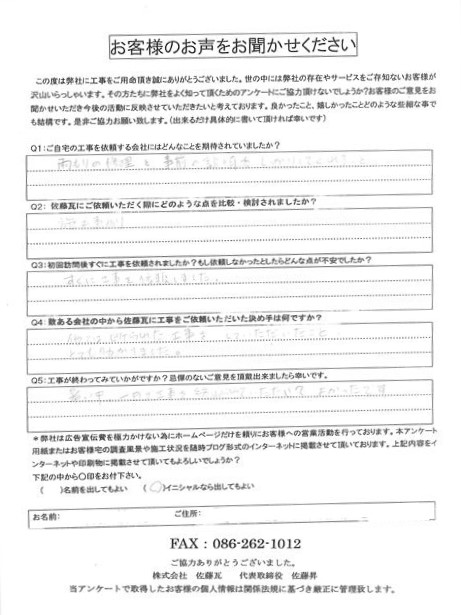 お客様のお声をお聞かせください
この度は弊社に工事をご用命頂き誠にありがとうございました。世の中には弊社の存在やサービスをご存知ないお客様が
沢山いらっしゃいます。その方たちに弊社をよく知って頂くためのアンケートにご協力頂けないでしょうか?お客様のご意見をお
聞かせいただき今後の活動に反映させていただきたいと考えております。良かったこと、嬉しかったことどのような些細な事で
も結構です。是非ご協力お願い致します。(出来るだけ具体的に書いて頂ければ幸いです)
Q1:ご自宅の工事を依頼する会社にはどんなことを期待されていましたか?
雨もりの修理と事前の
Q2: 佐藤瓦にご依頼いただく際にどのような点を比較・検討されましたか?
Q3:初回訪問後すぐに工事を依頼されましたか?もし依頼しなかったとしたらどんな点が不安でしたか?
すぐに工事を依頼しました。
Q4:数ある会社の中から佐藤瓦に工事をご依頼いただいた決め手は何ですか?
工事をしていただいたこと
Q5:工事が終わってみていかがですか?忌憚のないご意見を頂戴出来ましたら幸いです。
暑い中
*弊社は広告宣伝費を極力かけない為にホームページだけを頼りにお客様への営業活動を行っております。本アンケート
用紙またはお客様宅の調査風景や施工状況を随時ブログ形式のインターネットに掲載させて頂いております。上記内容をイ
ンターネットや印刷物に掲載させて頂いてもよろしいでしょうか?
下記の中から〇印をお付下さい。
( )名前を出してもよい (〇)イニシャルなら出してもよい
お名前: ご住所:
FAX:086-262-1012
ご協力ありがとうございました。
株式会社 佐藤瓦 代表取締役 佐藤昇
当アンケートで取得したお客様の個人情報は関係法規に基づき厳正に管理致します。